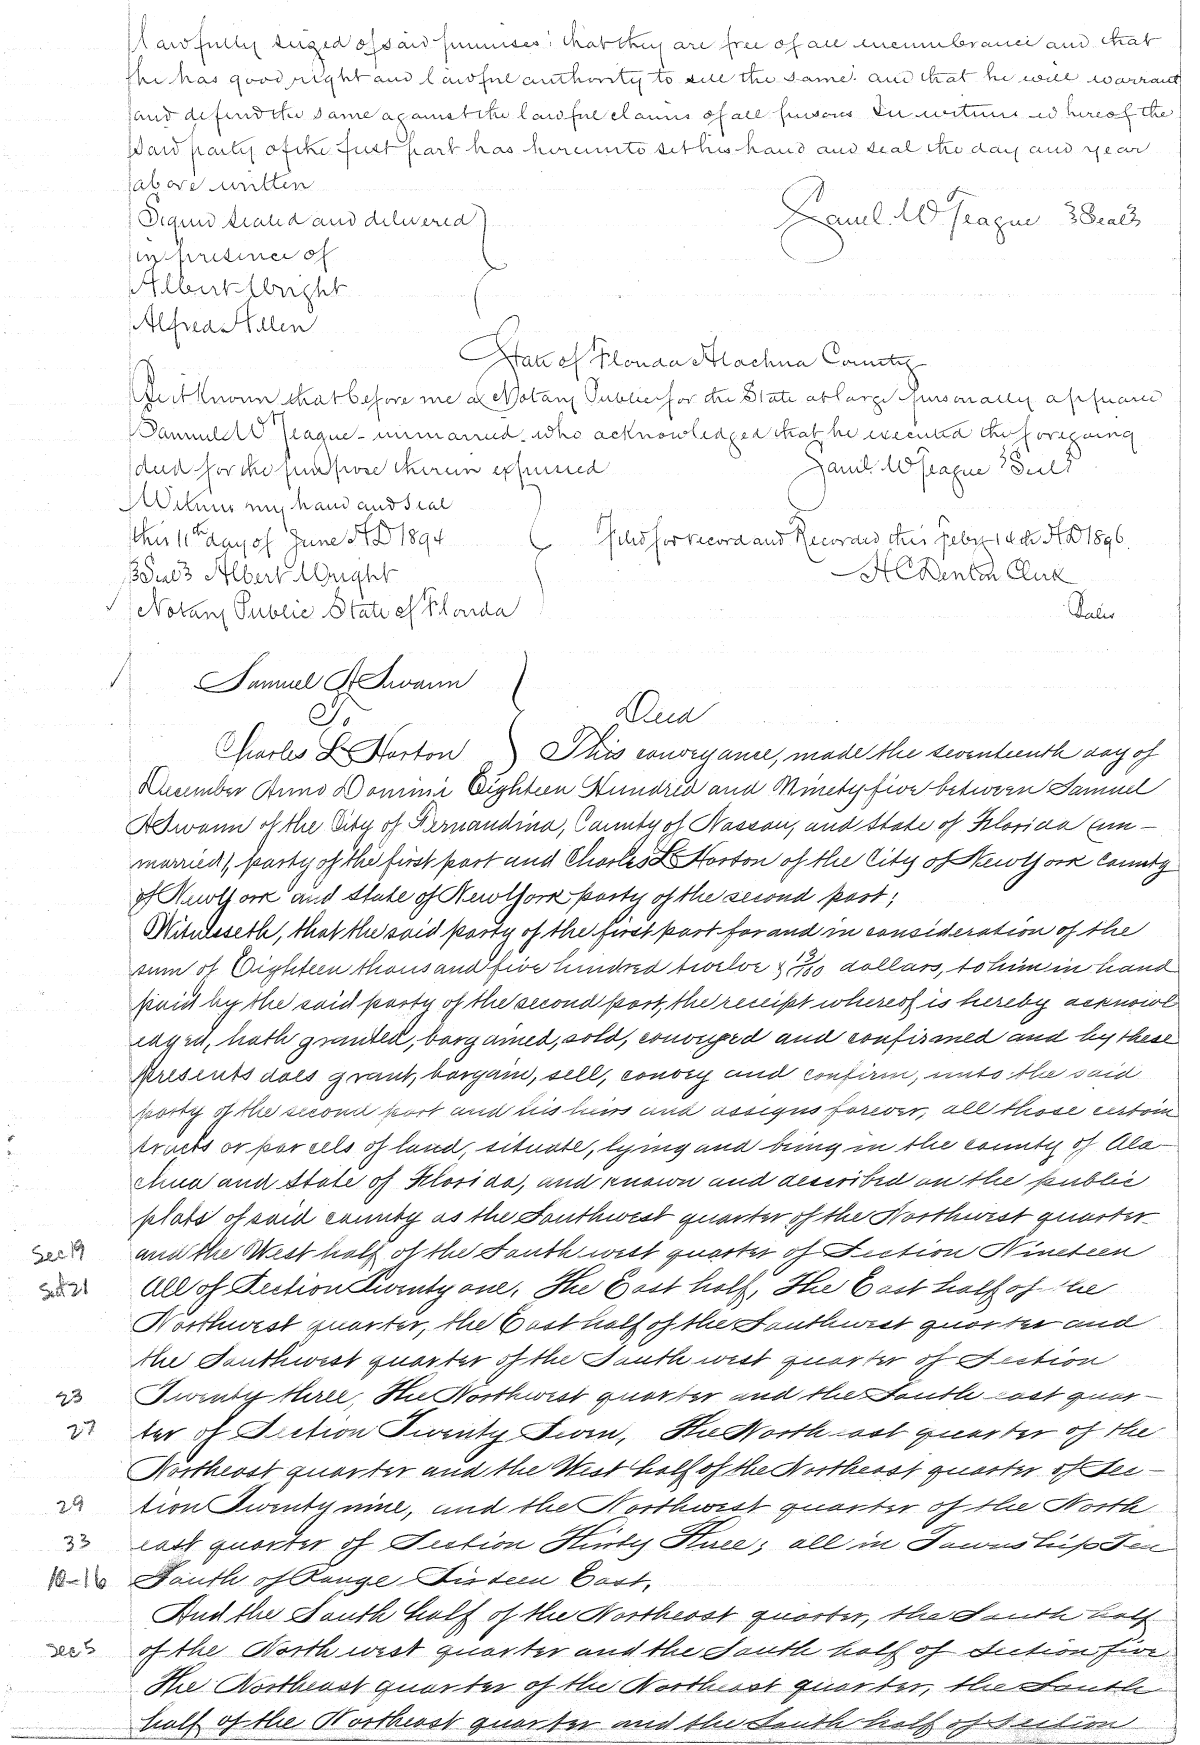 lawfully seized of said premises: that they are free of all incumbrance and that
he has good right and lawful authority to sell the same: and that he will warrant
and defend the same against the lawful claims of all persons In witness whereof the
said party of the first part has hereunto set his hand and seal the day and year
above written
Signed sealed and delivered
Saml. W Teague Seal
in presence of
Albert Wright
Alfred Allen
State of Florida Alachua County
Be it Known that before me a Notary Public for the State at large personally appeared
Samuel W Teague - unmarried - who acknowledged that he executed the foregoing
deed for the purpose therein expressed
Saml. W Teague Seal
Witness my hand and seal
this 11th day of June AD 1894
Filed for record and Recorded this Feby 14th AD 1896.
Seal Albert Wright
H C Denton Clerk
Notary Public State of Florida
Samuel A Swann
To
Deed
Charles L Norton
This conveyance, made the seventeenth day of
December Anno Domini Eighteen Hundred and Ninety five between Samuel
A Swann of the City of Fernandina, County of Nassau, and State of Florida (un-
married), party of the first part and Charles L Norton of the City of New York County
of New York and State of New York party of the second part;
Witnesseth, that the said party of the first part for and in consideration of the
sum of Eighteen thousand five hundred twelve & /100 dollars, to him in hand
paid by the said party of the second part, the receipt whereof is hereby acknowl
edged, hath granted, bargained, sold, conveyed and confirmed and by these
presents does grant, bargain, sell, convey and confirm, unto the said
party of the second part and his heirs and assigns forever, all those certain
tracts or parcels of land, situate, lying and being in the county of Ala-
chua and State of Florida, and known and described on the public
plats of said county as the Southwest quarter of the Northwest quarter
Sec 19 and the West half of the South west quarter of Section Nineteen
Sec 21 All of Section Twenty one, The East half, The East half of the
Northwest quarter, the East half of the Southwest quarter and
the Southwest quarter of the South west quarter of Section
23 Twenty three, The Northwest quarter and the South east quar-
27 ter of Section Twenty Seven, The North east quarter of the
Northeast quarter and the West half of the Northeast quarter of Sec-
29 tion Twenty nine, and the Northwest quarter of the North
33 east quarter of Section Thirty Three; all in Township Ten
10-16 South of Range Sixteen East.
And the South half of the Northeast quarter, the South half
Sec 5 of the North west quarter and the South half of Section five
The Northeast quarter of the Northeast quarter, the South
half of the Northeast quarter and the South half of Section